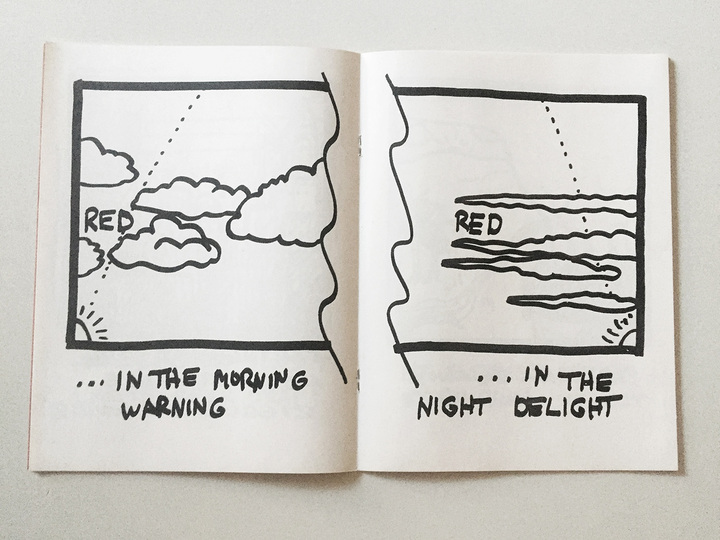 RED
... IN THE MORNING
WARNING
RED
... IN THE
NIGHT DELIGHT